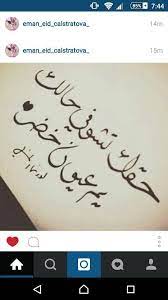 7:44
eman_eid_calstratova_ 14m
eman_eid_calstratova_ 15m
حقك تشوفي حالك
يم عيون خضر